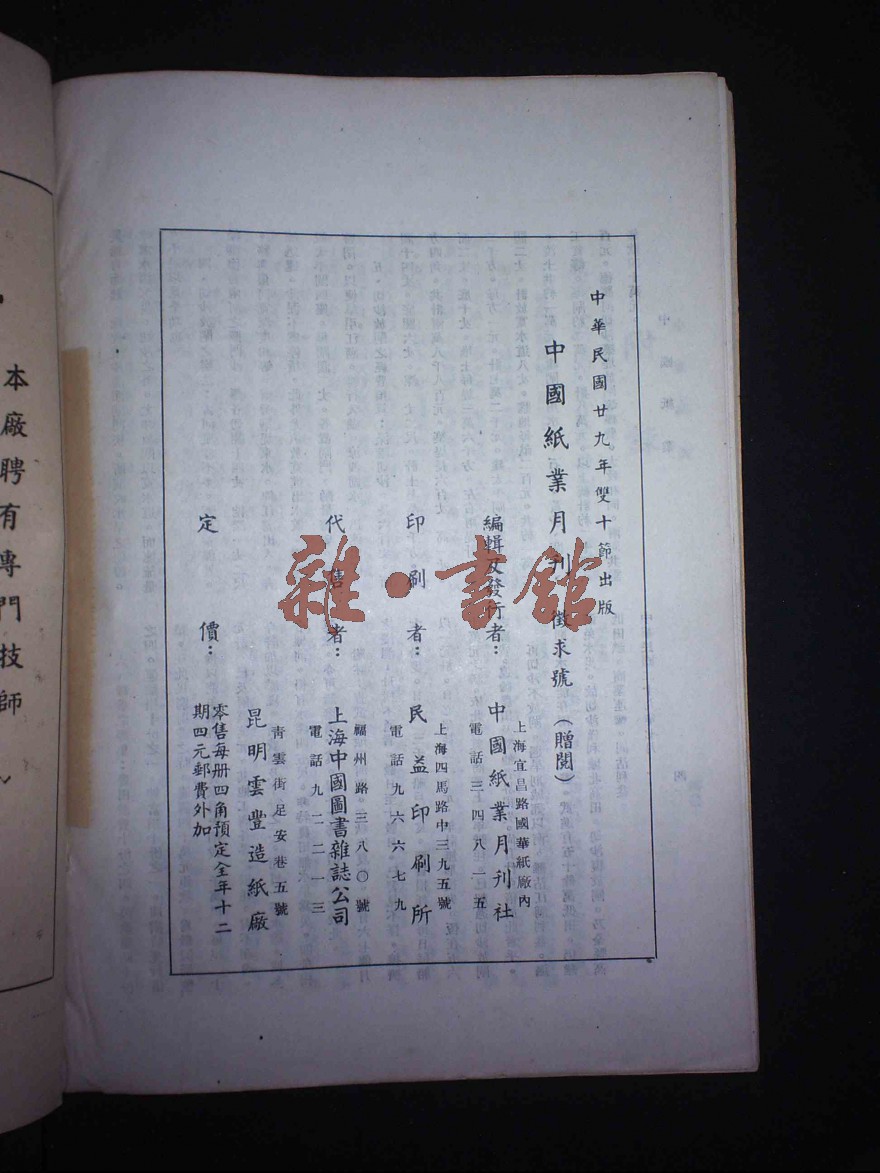 中華民國廿九年雙十節出版
中國紙業月刊 徵求號（贈閱）
編輯及發行者：
上海宜昌路國華紙廠內
中國紙業月刊社
電話三四八一五
印刷者：
上海四馬路中三九五號
民益印刷所
電話九六六七九
代售者：
福州路三八〇號
上海中國圖書雜誌公司
電話九二二一三
青雲街足安巷五號
昆明雲豐造紙廠
定價：
零售每冊四角預定全年十二
期四元郵費外加
雜·書館
本廠聘有專門技師